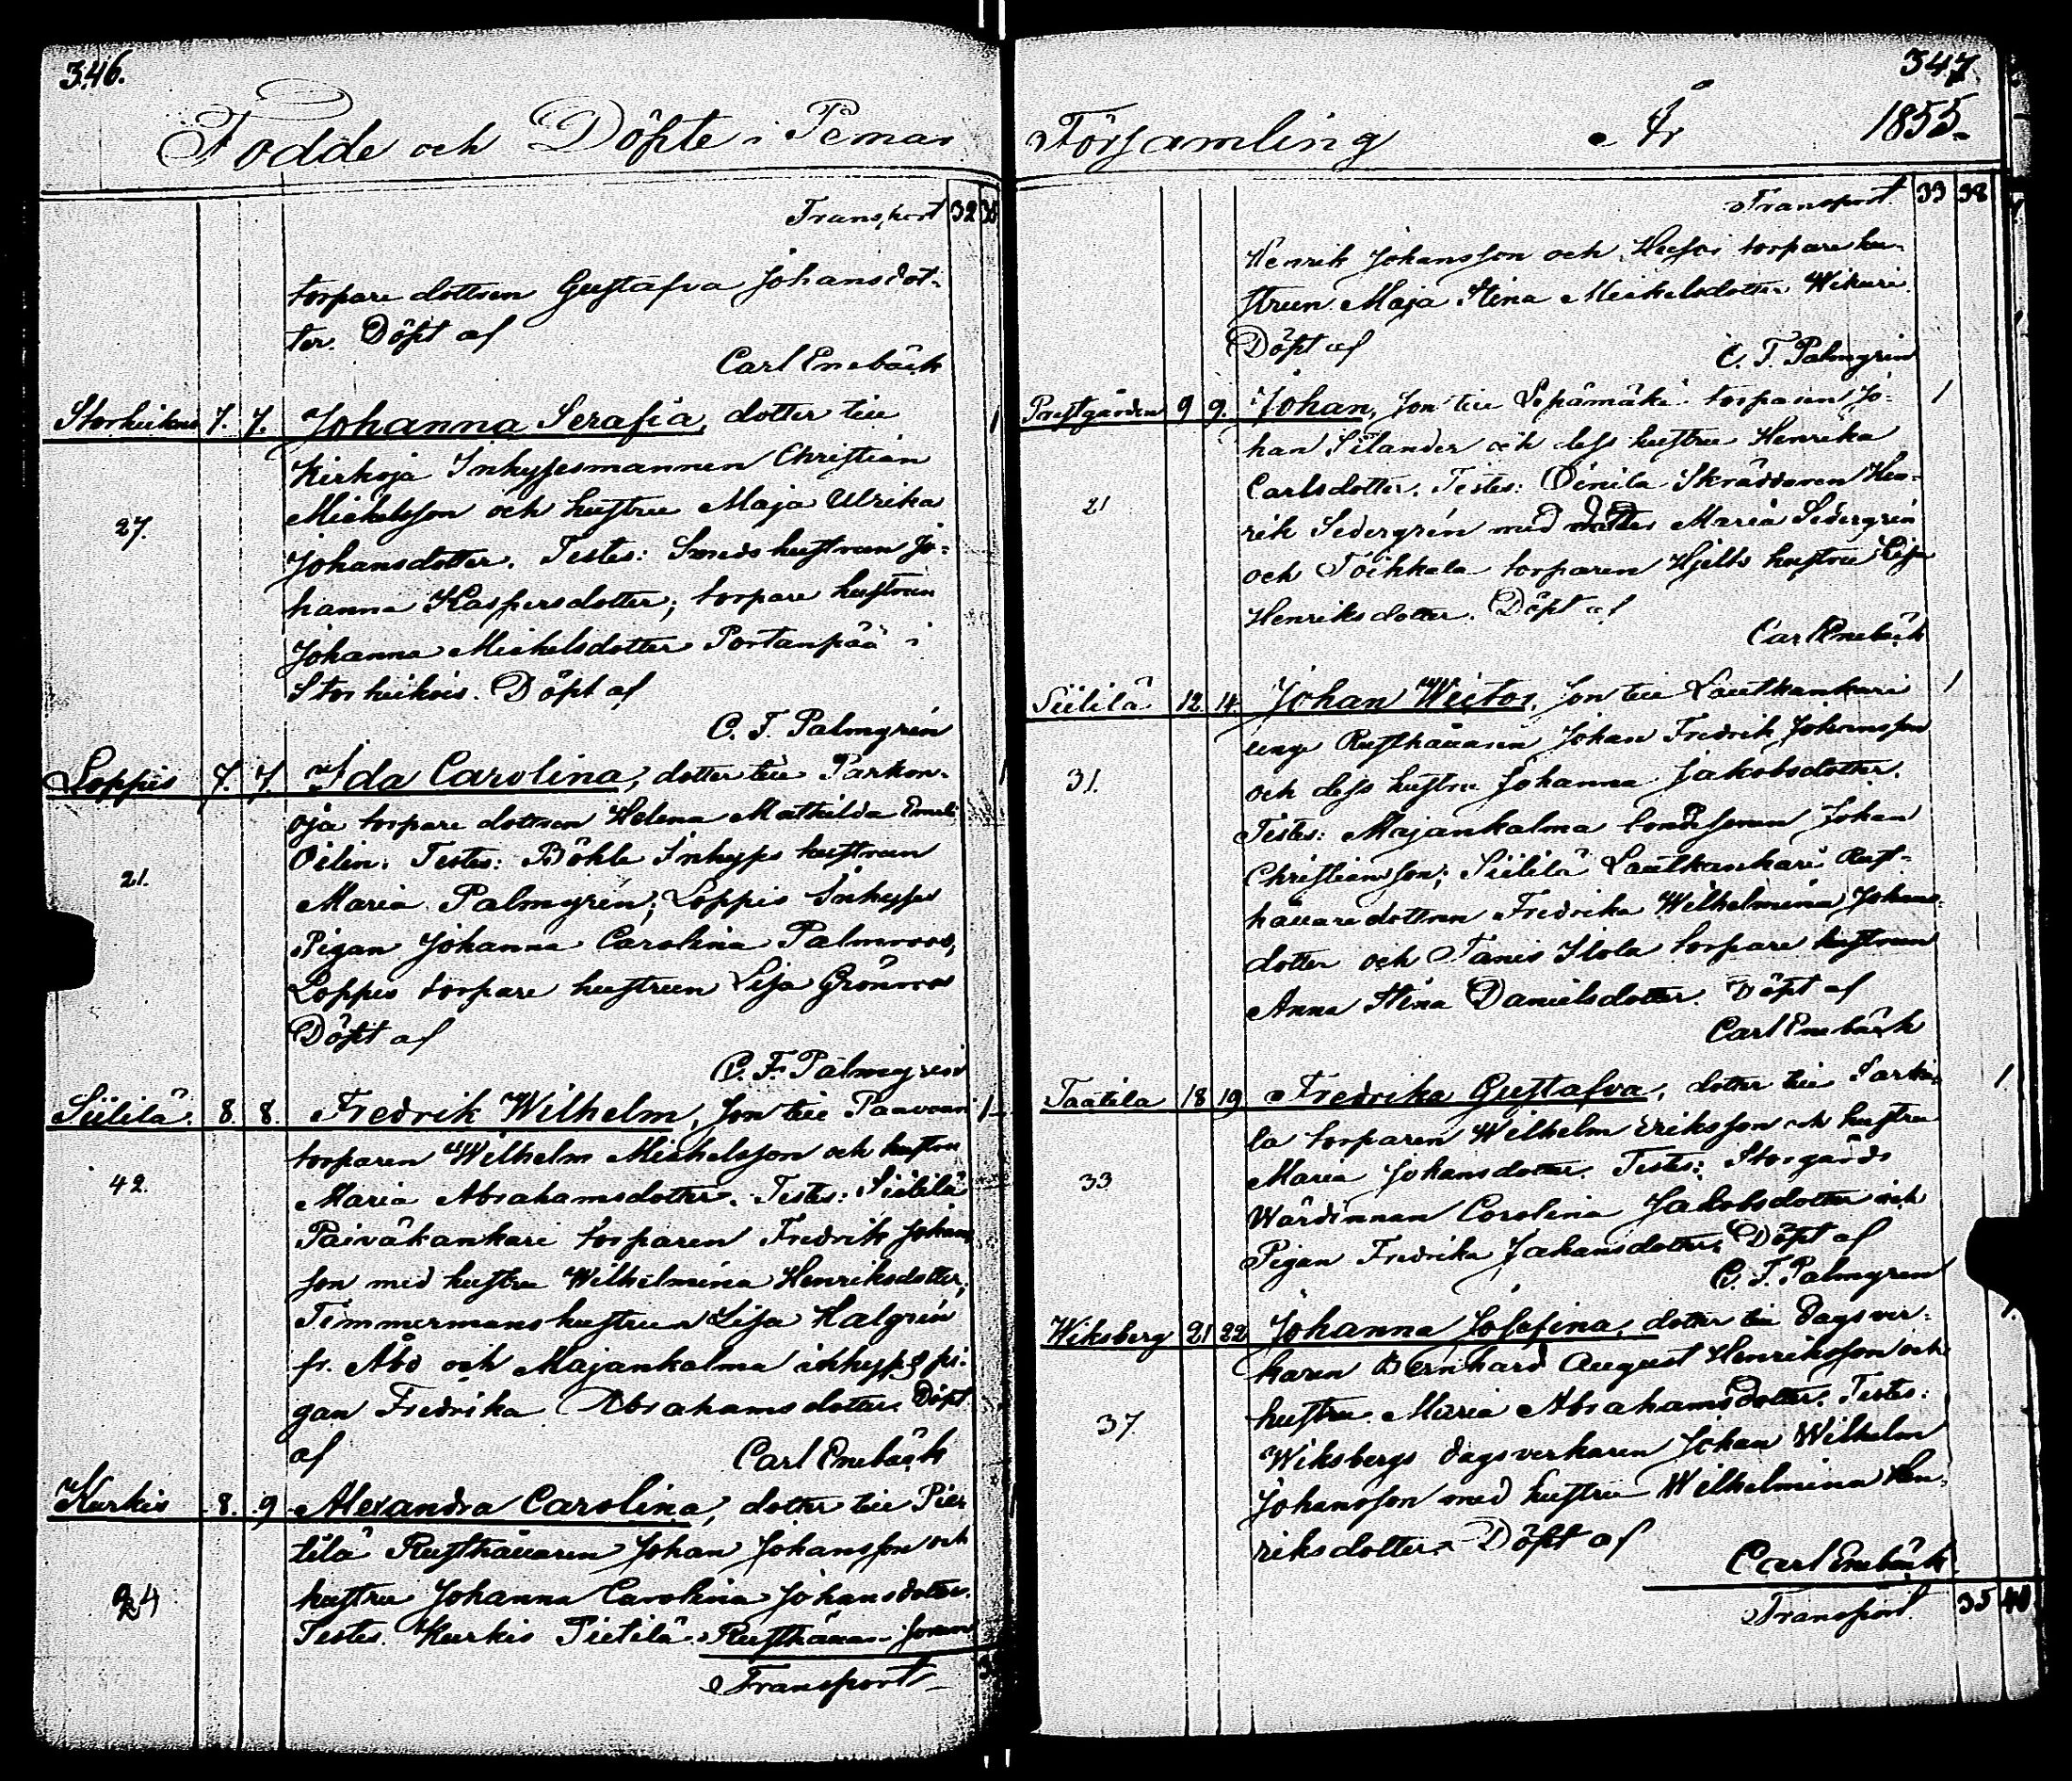 346.
Födde och Döpte i Pemar
Transport 32
torpare dottren Gustafva Johansdot-
ter. Döpt af
Carl Enebäck
7. 7. Johanna Serafia, dotter till
Kirkoja Inhysesmannen Christian
Michelsson och hustru Maja Ulrika
27.
Johansdotter. Testes: Smedshustrun Jo-
hanna Kaspersdotter; torpare hustrun
Johanna Michelsdotter Portanpää i
Storheikois. Döpt af
C. F. Palmgrén
Loppis 7. 7. Ida Carolina, dotter till Parkon-
oja torpare dottren Helena Mathilda
Oilin. Testes: Böhle Inhyses hustrun
21.
Maria Palmgrén; Loppis Inhyses
Pigan Johanna Carolina Palmroos,
Loppis torpare hustrun Lisa Grönroos
Döpt af
C. F. Palmgren
Siililä. 8. 8. Fredrik Wilhelm, son till Paavoan 1
torparen Wilhelm Michelsson och hustru
42.
Maria Abrahamsdotter. Testes: Siililä
Paiväkankare torparen Fredrik Johans
son med hustru Wilhelmina Henriksdotter;
Timmermanshustrun Lisa Kalgrén
fr. Åbo och Majankalma inhyses pi-
gan Fredrika Abrahamsdotter. Döpt
af Carl Enebäck
Kurkis 8. 9 Alexandra Carolina, dotter till Pie
tilä Rusthållaren Johan Johansson och
24
hustru Johanna Carolina Johansdotter.
Testes. Kurkis Pietilä Rusthållare sonen
Transport
347.
Församling År 1855.
Transport. 33 38
Henrik Johansson och torpare hu-
strun Maja Stina Michelsdotter Wikuri.
Döpt af
C. F. Palmgrén
Prestgården 9 9. Johan, son till Sepämäki torparen Jo- 1
han Silander och dess hustru Henrika
Carlsdotter. Testes: Oinila Skräddaren Hen-
21
rik Sedergrén med Maria Sedergrén
och Toikkala torparen Hjelts hustru Lisa
Henriksdotter. Döpt af
Carl Enebäck
Siililä 12. 14 Johan Wictor, son till Lautkankari 1
unge Rusthållaren Johan Fredrik Johansson
31.
och dess hustru Johanna Jakobsdotter.
Testes: Majankalma bondesonen Johan
Christiansson; Siililä Lautkankari Rust-
hållare dottren Fredrika Wilhelmina Johans-
dotter och Tanis Ilola torpare hustrun
Anna Stina Danielsdotter. Döpt af
Carl Enebäck
Taatila 18 19 Fredrika Gustafva, dotter till Parki- 1.
la torparen Wilhelm Eriksson och hustru
33
Maria Johansdotter. Testes: Storgårds
Wärdinnan Carolina Jakobsdotter och
Pigan Fredrika Johansdotter. Döpt af
C. F. Palmgren
Wiksberg 21 22 Johanna Josefina, dotter till Dagsver- 1.
karen Bernhard August Henriksson och
hustru Maria Abrahamsdotter. Testes:
37.
Wiksbergs dagsverkaren Johan Wilhelm
Johansson med hustru Wilhelmina Hen-
riksdotter. Döpt af
Carl Enebäck.
Transport. 35 40